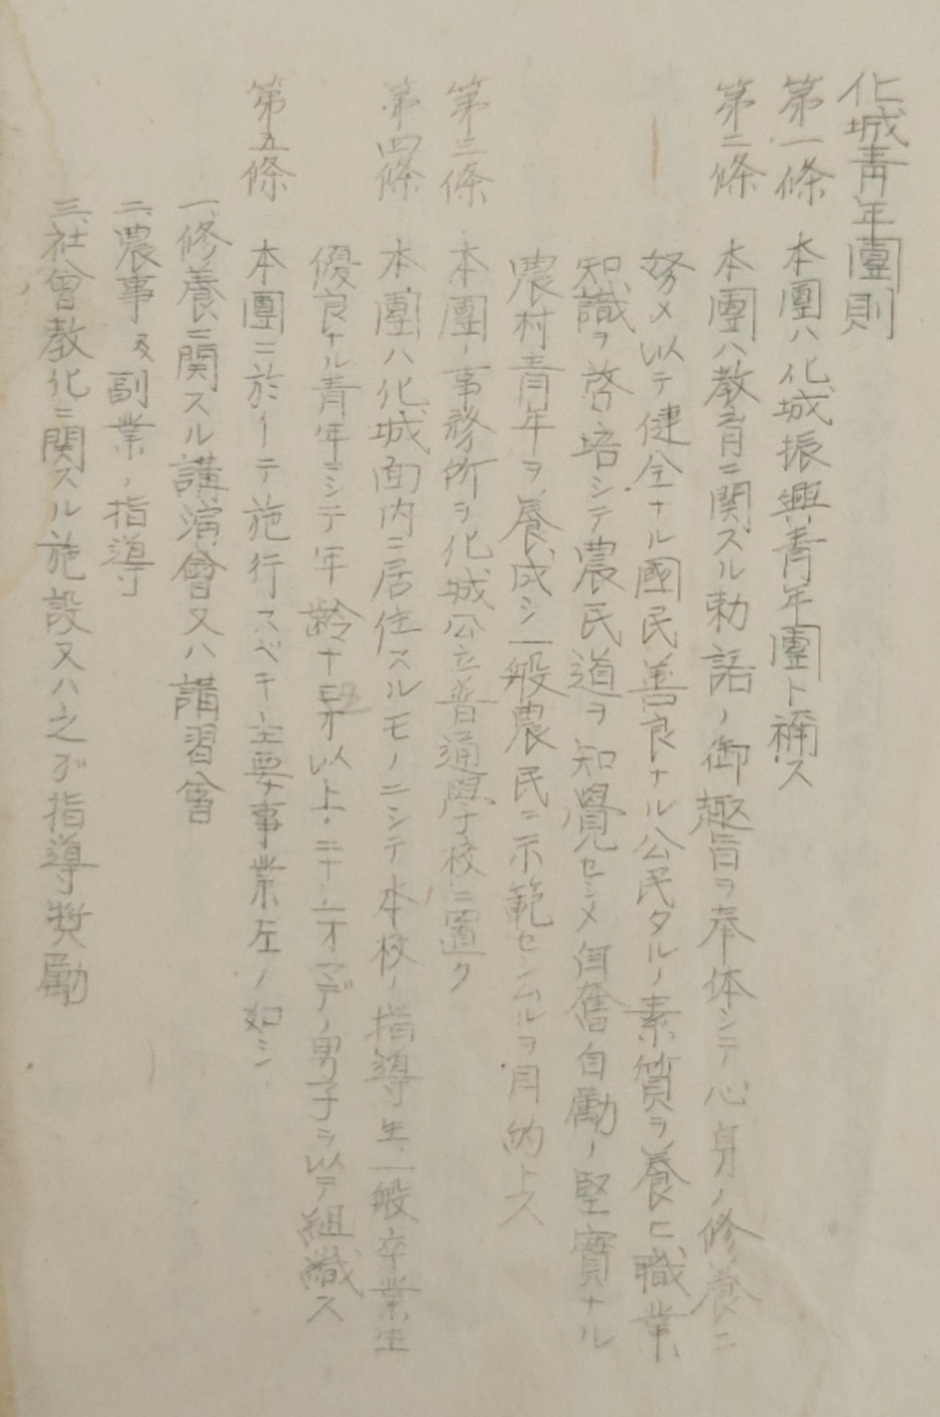 化城青年團則
第一條 本團ハ化城振興青年團ト稱ス
第二條 本團ハ教育ニ関スル勅語ノ御趣旨ヲ奉体シテ心身ノ修養ニ
努メ以テ健全ナル國民善良ナル公民タルノ素質ヲ養ヒ職業
知識ヲ啓培シテ農民道ヲ知覺セシメ奮自勵ノ堅實ナル
農村青年ヲ養成シ一般農民ニ示範セシムルヲ目的トス
第三條 本團ノ事務所ヲ化城公立普通學校ニ置ク
第四條 本團ハ化城面内ニ居住スルモノニシテ本校ノ指導生一般卒業生
優良ナル青年ニシテ年齢十才以上二十五才マデノ男子ヲ以テ組織ス
第五條 本團ニ於イテ施行スベキ主要ナ事業左ノ如シ
一、修養ニ関スル講演會又ハ講習會
二、農事及副業ノ指導
三、社會教化ニ関スル施設又ハ之ガ指導奨勵